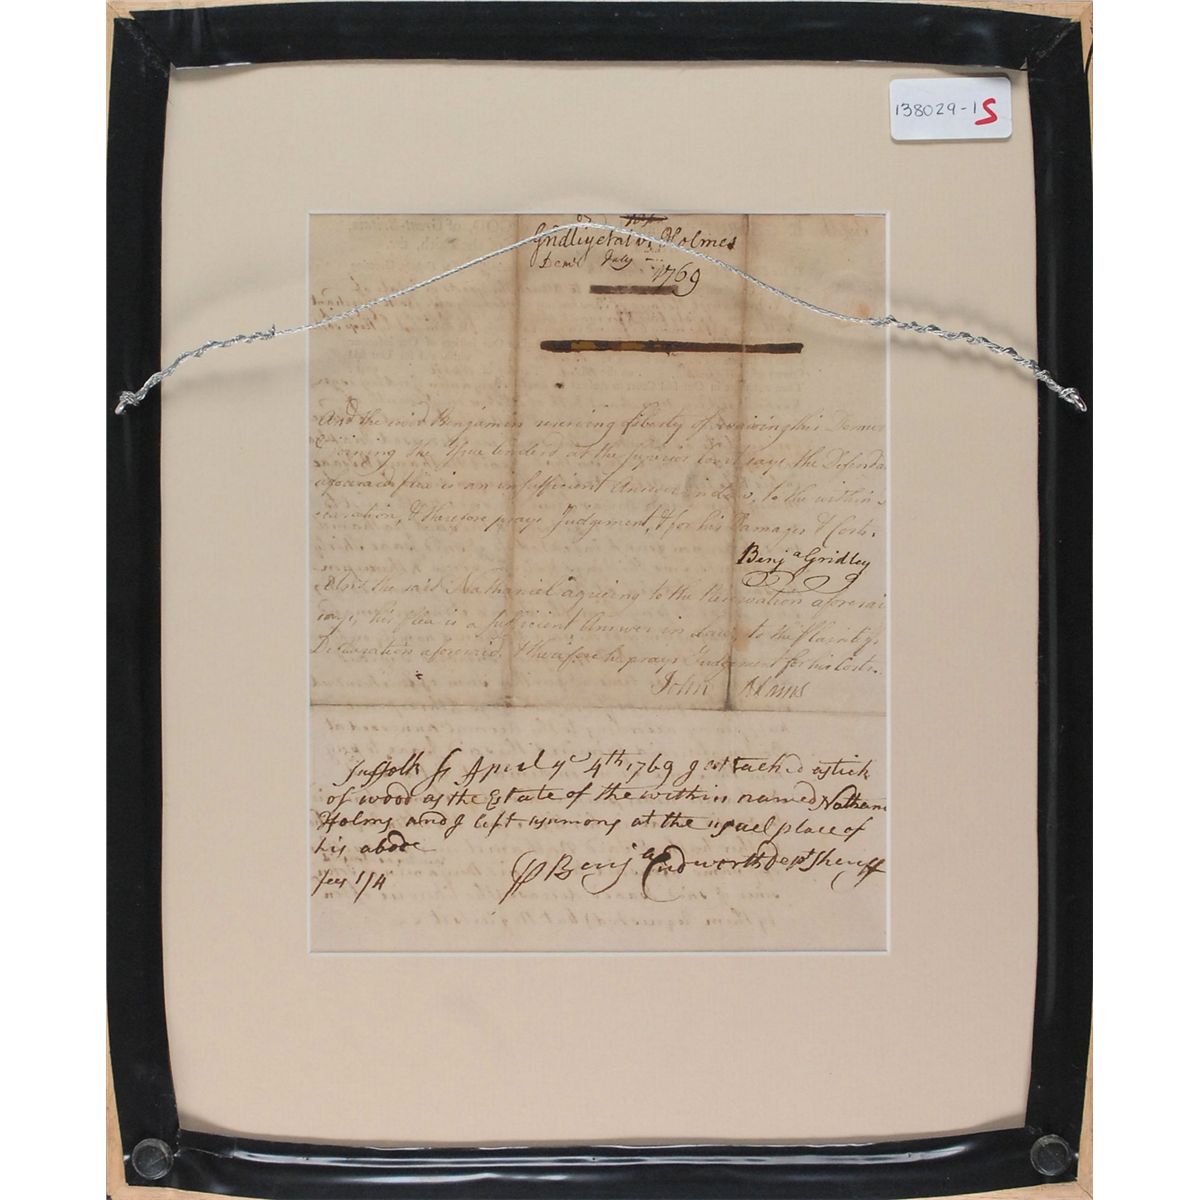 138029-1S
Gridley et al vs Holmes
Demr July
1769
And the said Benjamin reserving Liberty of waiving this Demur
& joining the Issue tenderd at the Superior Court says the Defenda
aforesaid plea is an insufficient Answer in Law, to the within
claration, & therefore prays Judgement, & for his Damages & Costs.
Benja Gridley
And the said Nathaniel agreeing to the Reservation aforesai
says, his plea is a sufficient Answer in Law, to the Plaintiffs
Declaration aforesaid. & therefore he prays Judgement for his Costs.
John Adams
Suffolk Ss April ye 4th 1769 I attached a stick
of wood as the Estate of the within named Nathan
Holms and I left a sumons at the usuel place of
his abode
fees 1/4
Benja Cudworth Dept Sheriff